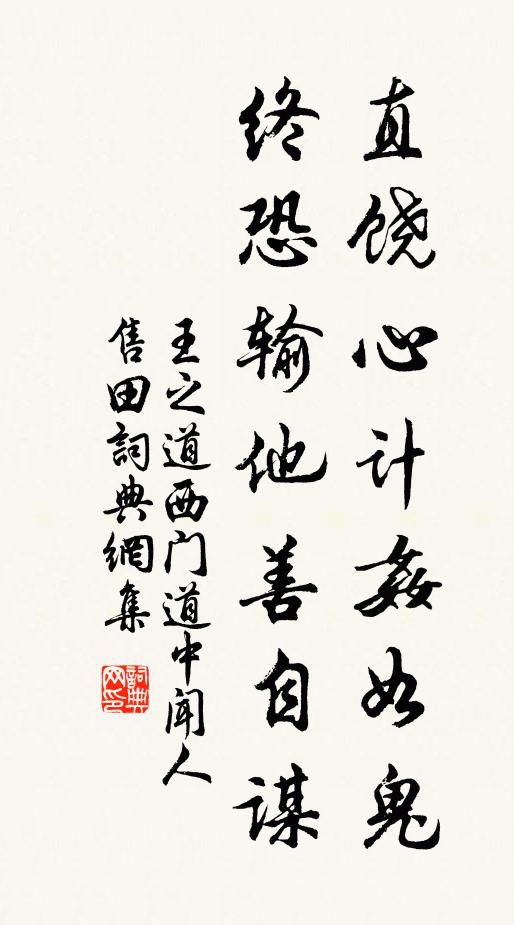 直饶心计姦如鬼
终恐输他善自谋
王之道西门道中闻人
售田詞典網集
詞典
网印